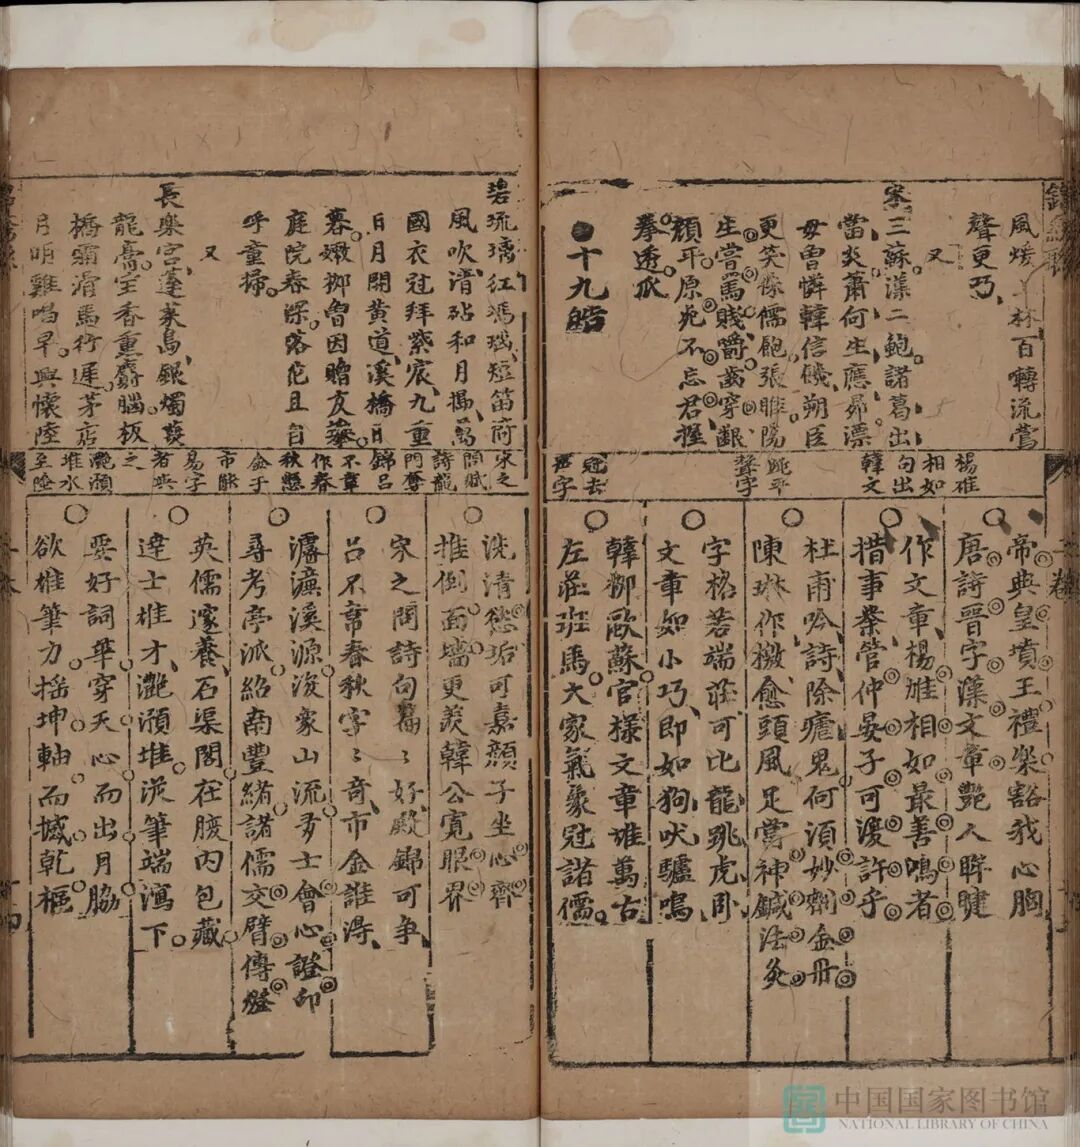 風煖
林百囀流鶯
聲更巧
又
宋三蘇漢二鮑諸葛出
當炎蕭何生應昴漂
母曾憐韓信饑朔臣
更笑侏儒飽張睢陽
生嘗罵賊嚼齒穿齦
顏平原死不忘君握
拳透爪
十九皓
楊雄
相如
句出
韓文
聲字
冠去
聲字
帝典皇墳王禮樂豁我心胸
唐詩晉字漢文章艷人眸睫
作文章楊雄相如最善鳴者
措事業管仲晏子可復許乎
杜甫吟詩除瘧鬼何須妙劑金丹
陳琳作檄愈頭風足當神鍼法灸
字格若端莊可比龍跳虎臥
文章如小巧即如狗吠驢鳴
韓柳歐蘇官樣文章堆萬古
左莊班馬大家氣象冠諸儒
碧琉璃紅瑪瑙短笛府
風吹清砧和月搗萬
國衣冠拜紫宸九重
日月開黃道溪橋日
暮嫩柳曾因贈友攀
庭院春深落花且自
呼童掃
又
長樂宮蓬萊島銀燭
龍膏室香重麝腦板
橋霜滑馬行遲茅店
月明雞唱早興懷陸
宋之
問賦
詩龍
門奪
錦呂
不韋
作春
秋懸
金于
市能
易字
者與
之
灩澦
堆水
至陸
洗清愁垢可嘉顏子坐心齊
推倒面墻更羨韓公寬眼界
宋之問詩句篇〻好殿錦可爭
呂不韋春秋字〻奇市金誰得
濬濂溪源浚象山流多士會心證印
尋考亭派紹南豐緒諸儒交臂傳燈
英儒邃養石渠閣在腹內包藏
達士雄才灩澦堆從筆端瀉下
要好詞華穿天心而出月脇
欲雄筆力搖坤軸而撼乾樞
中国国家图书馆
NATIONAL LIBRARY OF CHINA